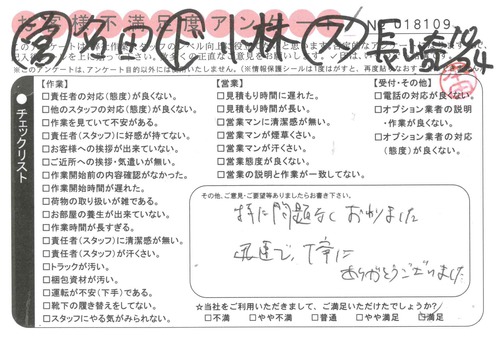 お客様不満足度アンケート
№ 018109
チェックリスト
【作業】
□責任者の対応(態度)が良くない。
□他のスタッフの対応(態度)が良くない。
□作業を見ていて不安がある。
□責任者(スタッフ)に好感が持てない。
□お客様への挨拶が出来ていない。
□ご近所への挨拶・気遣いが無い。
□作業開始前の内容確認がなかった。
□作業開始時間が遅れた。
□荷物の取り扱いが雑である。
□お部屋の養生が出来ていない。
□作業時間が長すぎる。
□責任者(スタッフ)に清潔感が無い。
□責任者(スタッフ)が汗くさい。
□トラックが汚い。
□梱包資材が汚い。
□運転が不安(下手)である。
□靴下の履き替えをしてない。
□スタッフにやる気がみられない。
【営業】
□見積もり時間に遅れた。
□見積もり時間が長い。
□営業マンに清潔感が無い。
□営業マンが煙草くさい。
□営業マンが汗くさい。
□営業態度が良くない。
□営業の説明と作業が一致してない。
【受付・その他】
□電話の対応が良くない。
□オプション業者の説明
・作業が良くない。
□オプション業者の対応
(態度)が良くない。
その他、ご意見・ご要望等ありましたらお書き下さい。
特に問題なく おわりました
迅速で、丁寧に
ありがとうございました
☆当社をご利用いただきまして、ご満足いただけたでしょうか?
□不満 □やや不満 □普通 □やや満足 □満足